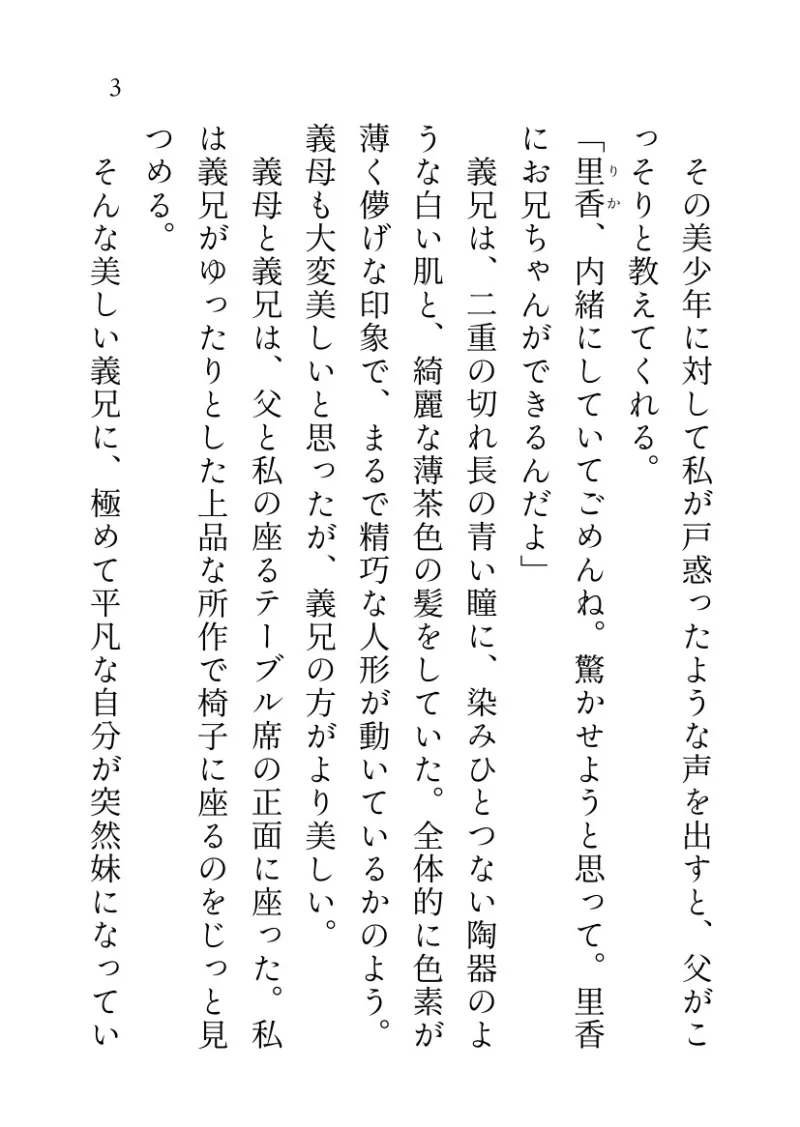 3
その美少年に対して私が戸惑ったような声を出すと、父がこ
っそりと教えてくれる。
「里香、内緒にしていてごめんね。驚かせようと思って。里香
りか
にお兄ちゃんができるんだよ」
義兄は、二重の切れ長の青い瞳に、染みひとつない陶器のよ
うな白い肌と、綺麗な薄茶色の髪をしていた。全体的に色素が
薄く儚げな印象で、まるで精巧な人形が動いているかのよう。
義母も大変美しいと思ったが、義兄の方がより美しい。
義母と義兄は、父と私の座るテーブル席の正面に座った。私
は義兄がゆったりとした上品な所作で椅子に座るのをじっと見
つめる。
そんな美しい義兄に、極めて平凡な自分が突然妹になってい